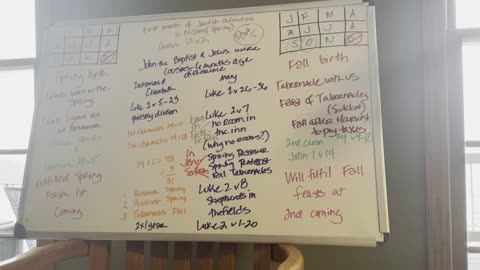 First month of Jewish Calendar
is Nissan (Spring)
Exodus 12 v 2
J F M A
M J J A
S O N
John the Baptist & Jesus were
cousins - 6 months age
difference
Zacharias &
Elizabeth
Luke 1 v 5-23
priestly division
1st Chronicles 24 v 10
1st Chronicles 24 v 18
24 x 2 = 48
+ 3
51
1 Passover Spring
2 Pentecost Spring
3 Tabernacles Fall
2 x 1 year
Mary
Luke 1 v 26-36
Luke 2 v 7
no room in
the inn
(why no rooms?)
In
Jeru
Salem
Spring Passover
Spring Pentecost
Fall Tabernacles
Luke 2 v 8
shepherds in
the fields
Luke 2 v 1-20
Spring Birth
Lambs born in the
Spring
Lamb 1 year old
at Passover
Fulfilled Spring
Feasts 1st
Coming
Fall birth
Tabernacle with us
Feast of Tabernacles
(Sukkot)
Fall after Harvest
to pay taxes
John 1 v 14
Will fulfil Fall
feasts at
2nd coming